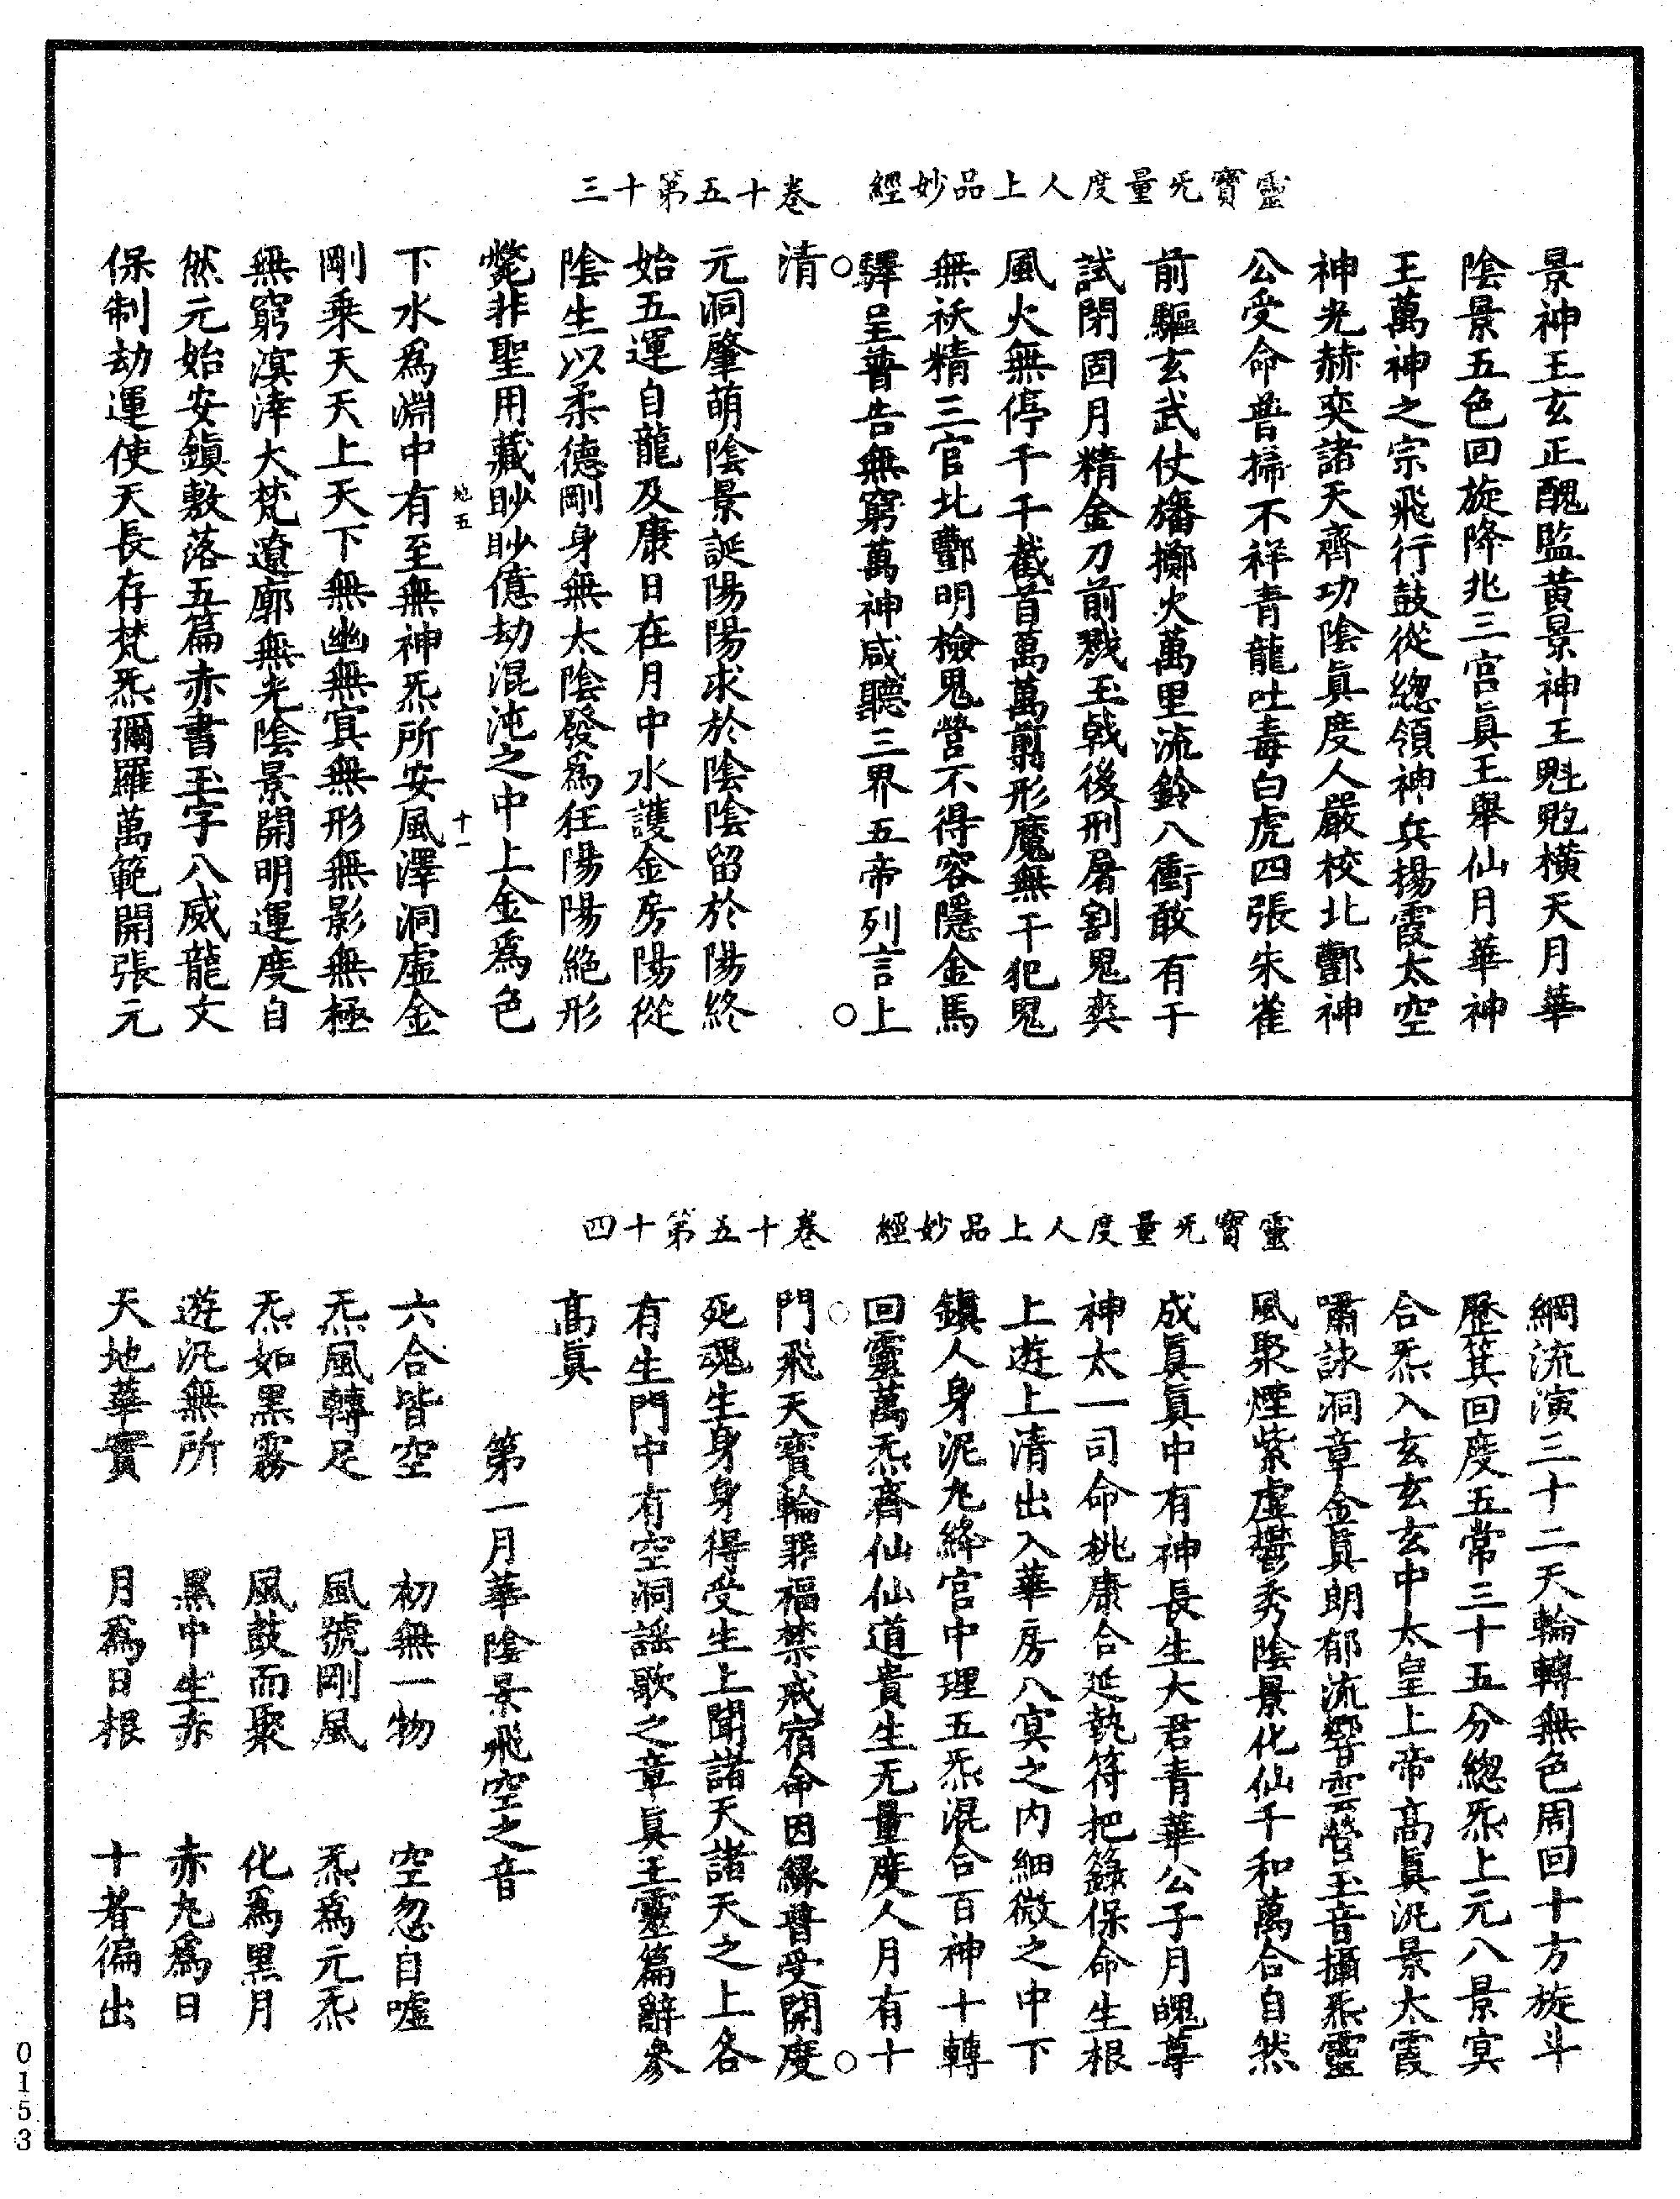 靈寶旡量度人上品妙經　卷十五第十三
景神王玄正醜監黄景神王魁䰢橫天月華
陰景五色回旋降兆三宮眞王舉仙月華神
王萬神之宗飛行鼓從緫領神兵揚霞太空
神光赫奕諸天齊功陰眞度人嚴校北酆神
公受命普掃不祥青龍吐毒白虎四張朱雀
前驅玄武仗旛擲火萬里流鈴八衝敢有干
試閉固月精金刀前戮玉戟後刑屠割鬼爽
風火無停千千截首萬萬剪形魔無干犯鬼
無祅精三官北酆明檢鬼營不得容隱金馬
驛呈普告無窮萬神咸聽三界五帝列言上
清
元洞肇萌陰景誕陽陽求於陰陰留於陽終
始五運自龍及康日在月中水護金房陽從
陰生以柔德剛身無太陰發爲狂陽陽絶形
斃非聖用藏眇眇億劫混沌之中上金爲色
地五　十一
下水爲淵中有至無神炁所安風澤洞虛金
剛乘天天上天下無幽無冥無形無影無極
無窮溟涬大梵遼廓無光陰景開明運度自
然元始安鎮敷落五篇赤書玉字八威龍文
保制劫運使天長存梵炁彌羅萬範開張元
靈寶旡量度人上品妙經　卷十五第十四
綱流演三十二天輪轉無色周回十方旋斗
歷箕回度五常三十五分緫炁上元八景冥
合炁入玄玄玄中太皇上帝高眞汎景太霞
嘯詠洞章金眞朗郁流響雲營玉音攝炁靈
風聚煙紫虛鬱秀陰景化仙千和萬合自然
成眞眞中有神長生大君青華公子月魄尊
神太一司命桃康合延執符把籙保命生根
上遊上清出入華房八冥之内細微之中下
鎮人身泥丸絳宮中理五炁混合百神十轉
回靈萬炁齊仙仙道貴生无量度人月有十
門飛天寶輪罪福禁戒宿命因緣普受開度
死魂生身身得受生上聞諸天諸天之上各
有生門中有空洞謡歌之章眞王靈篇辭參
高眞
第一月華陰景飛空之音
六合皆空　初無一物　空忽自噓
炁風轉足　風號剛風　炁爲元炁
炁如黑霧　風鼓而聚　化爲黒月
遊汎無所　黒中生赤　赤丸爲日
天地華實　月爲日根　十者徧出
0153